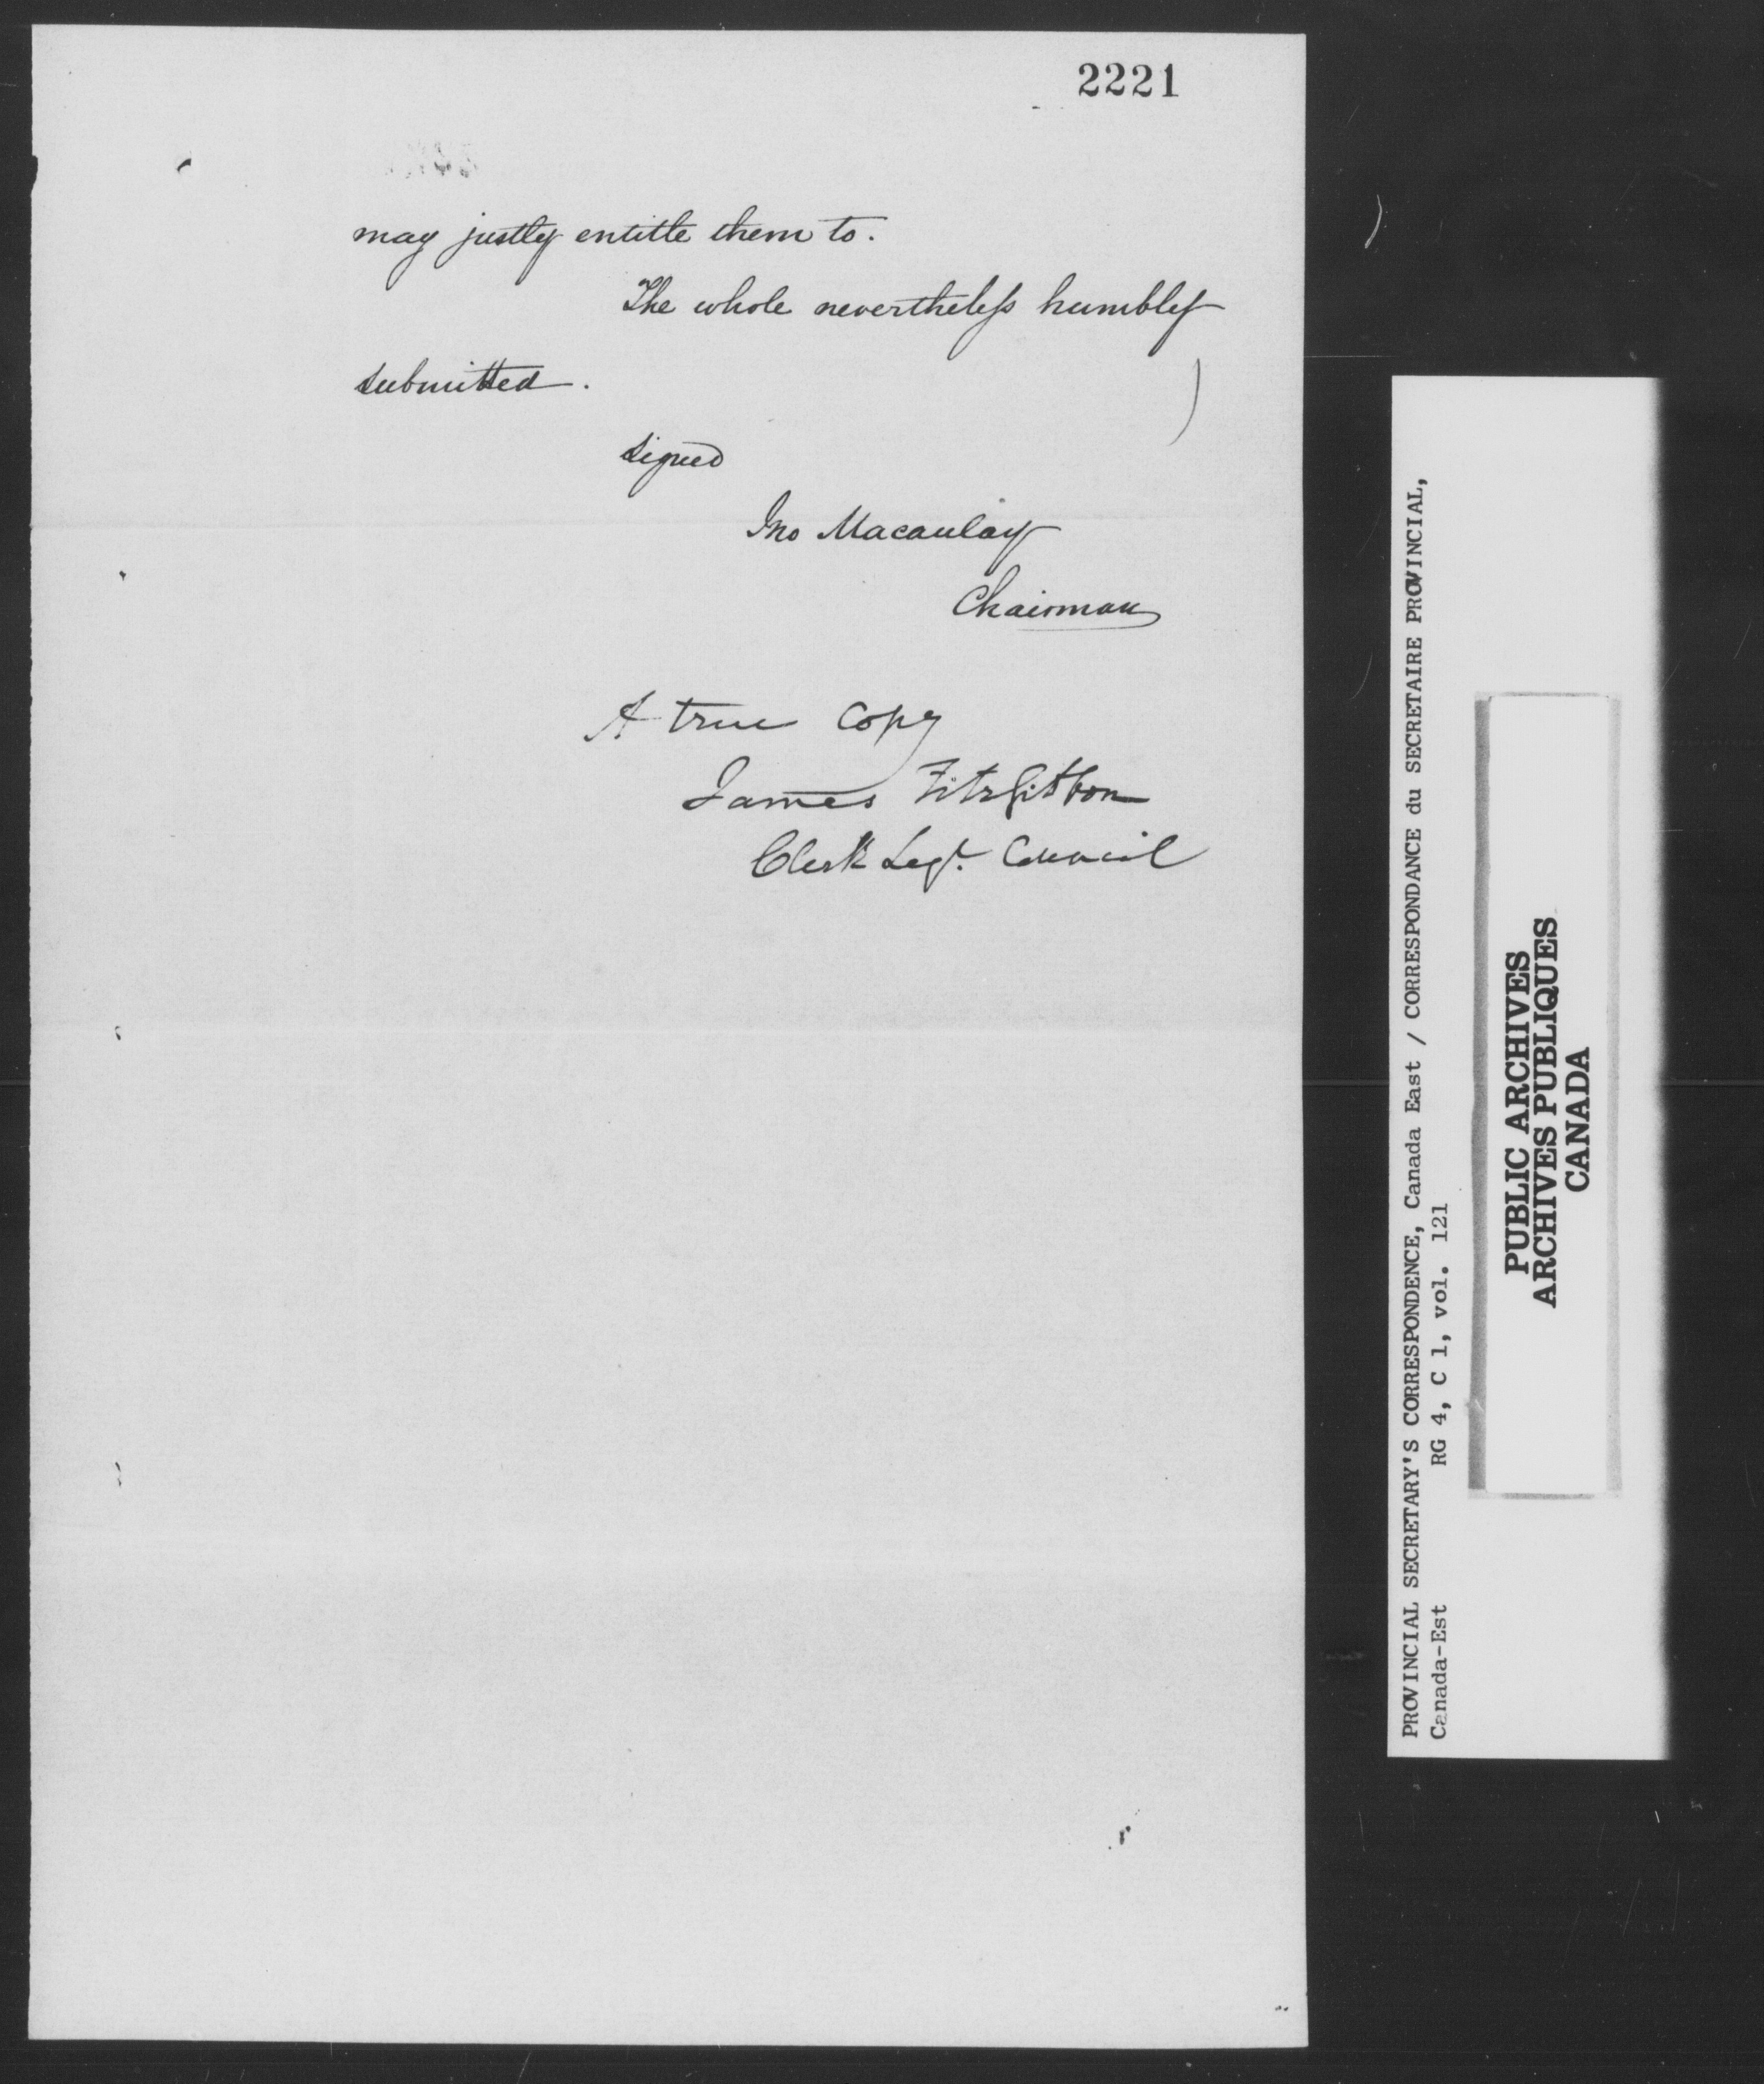 2221
may justly entitle them to.
The whole nevertheless humbly
submitted.
Signed
Jno Macaulay
Chairman
A true Copy
James FitzGibbon
Clerk Legt. Council
PROVINCIAL SECRETARY'S CORRESPONDENCE, Canada East / CORRESPONDANCE du SECRETAIRE PROVINCIAL,
Canada-Est RG 4, C 1, vol. 121
PUBLIC ARCHIVES
ARCHIVES PUBLIQUES
CANADA